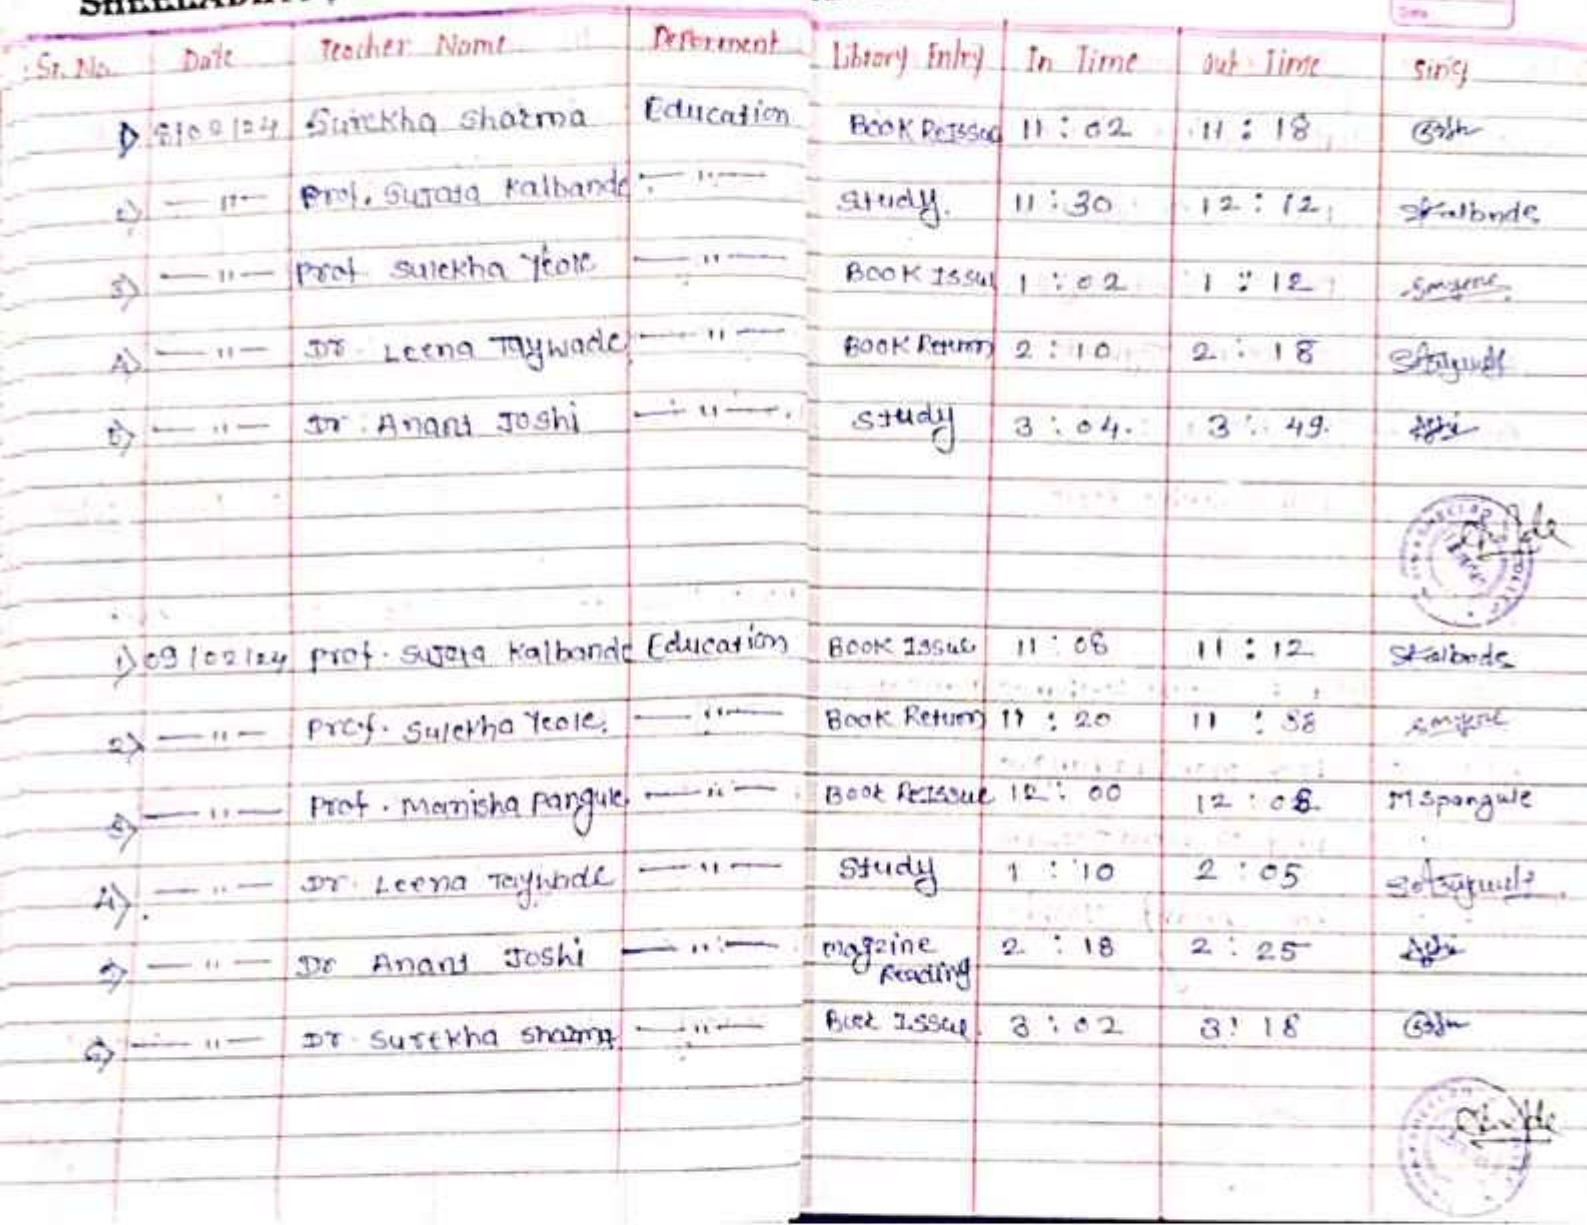 Sr. No. Date Teacher Name Deforment Library Entry In Time out Time sing
1) 8/02/24 Surekha sharma Education Book ReIssue 11 : 02 11 : 18
2) —"— Prof. Sujata Kalbande —"— Study. 11 : 30 12 : 12 Skalbnde
3) —"— Prof Sulekha Yeole —"— Book Issue 1 : 02 1 : 12
4) —"— Dr. Leena Taywade —"— Book Return 2 : 10 2 : 18
5) —"— Dr. Anant Joshi —"— Study 3 : 04 3 : 49
1) 09/02/24 Prof. Sujata Kalbande Education Book Issue 11 : 08 11 : 12 Skalbnde
2) —"— Prof. Sulekha Yeole. —"— Book Return 11 : 20 11 : 38
3) —"— Prof. Manisha Pangule —"— Book ReIssue 12 : 00 12 : 08 MSpangule
4) —"— Dr. Leena Taywade —"— Study 1 : 10 2 : 05
5) —"— Dr Anant Joshi —"— magzine 2 : 18 2 : 25
Reading
6) —"— Dr. Surekha Sharma —"— Issue 3 : 02 3 : 18